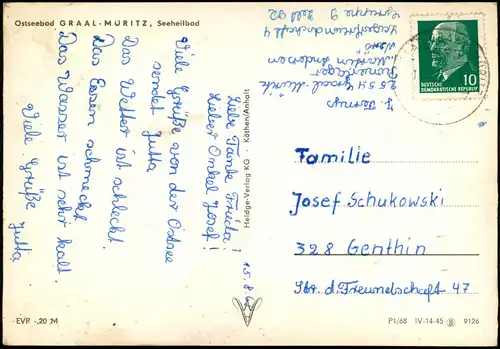 Ostseebad GRAAL-MÜRITZ, Seeheilbad
Liebe Tante Frida!
Lieber Onkel Josef!
Viele Grüße von der Ostsee
sendet Jutta
Das Wetter ist schlecht.
Das Essen schmeckt.
Das Wasser ist sehr kalt.
Viele Grüße
Jutta
15.8.
2554 Graal-Müritz
Pionierlager
"Martin Andersen
Nexö"
Gruppe 9 Zelt 92
DEUTSCHE
DEMOKRATISCHE REPUBLIK
10
Familie
Josef Schukowski
328 Genthin
Str. d. Freundschaft 47
Heldge-Verlag KG · Köthen/Anhalt
EVP -,20 M
P1/68 IV-14-45 B 9126